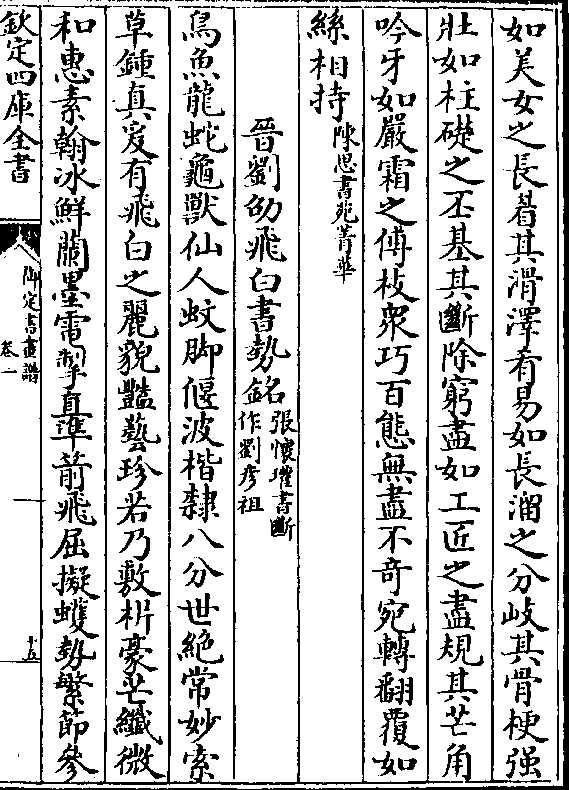 如美女之長眉其滑澤肴易如長溜之分岐其骨梗强
壯如柱礎之丕基其斷除窮盡如工匠之盡規其芒角
吟牙如嚴霜之傅枝衆巧百態無盡不奇宛轉翻覆如
絲相持陳思書苑菁華
晉劉劭飛白書勢銘張懷瓘書斷作劉彦祖
鳥魚龍蛇龜獸仙人蚊脚偃波楷隸八分世絶常妙索
草鍾真爰有飛白之麗貌豔藝珍若乃敷析豪芒纎微
和惠素翰冰鮮蘭墨電掣直準箭飛屈擬蠖勢繁節參
欽定四庫全書
御定書畫譜
卷一
十五